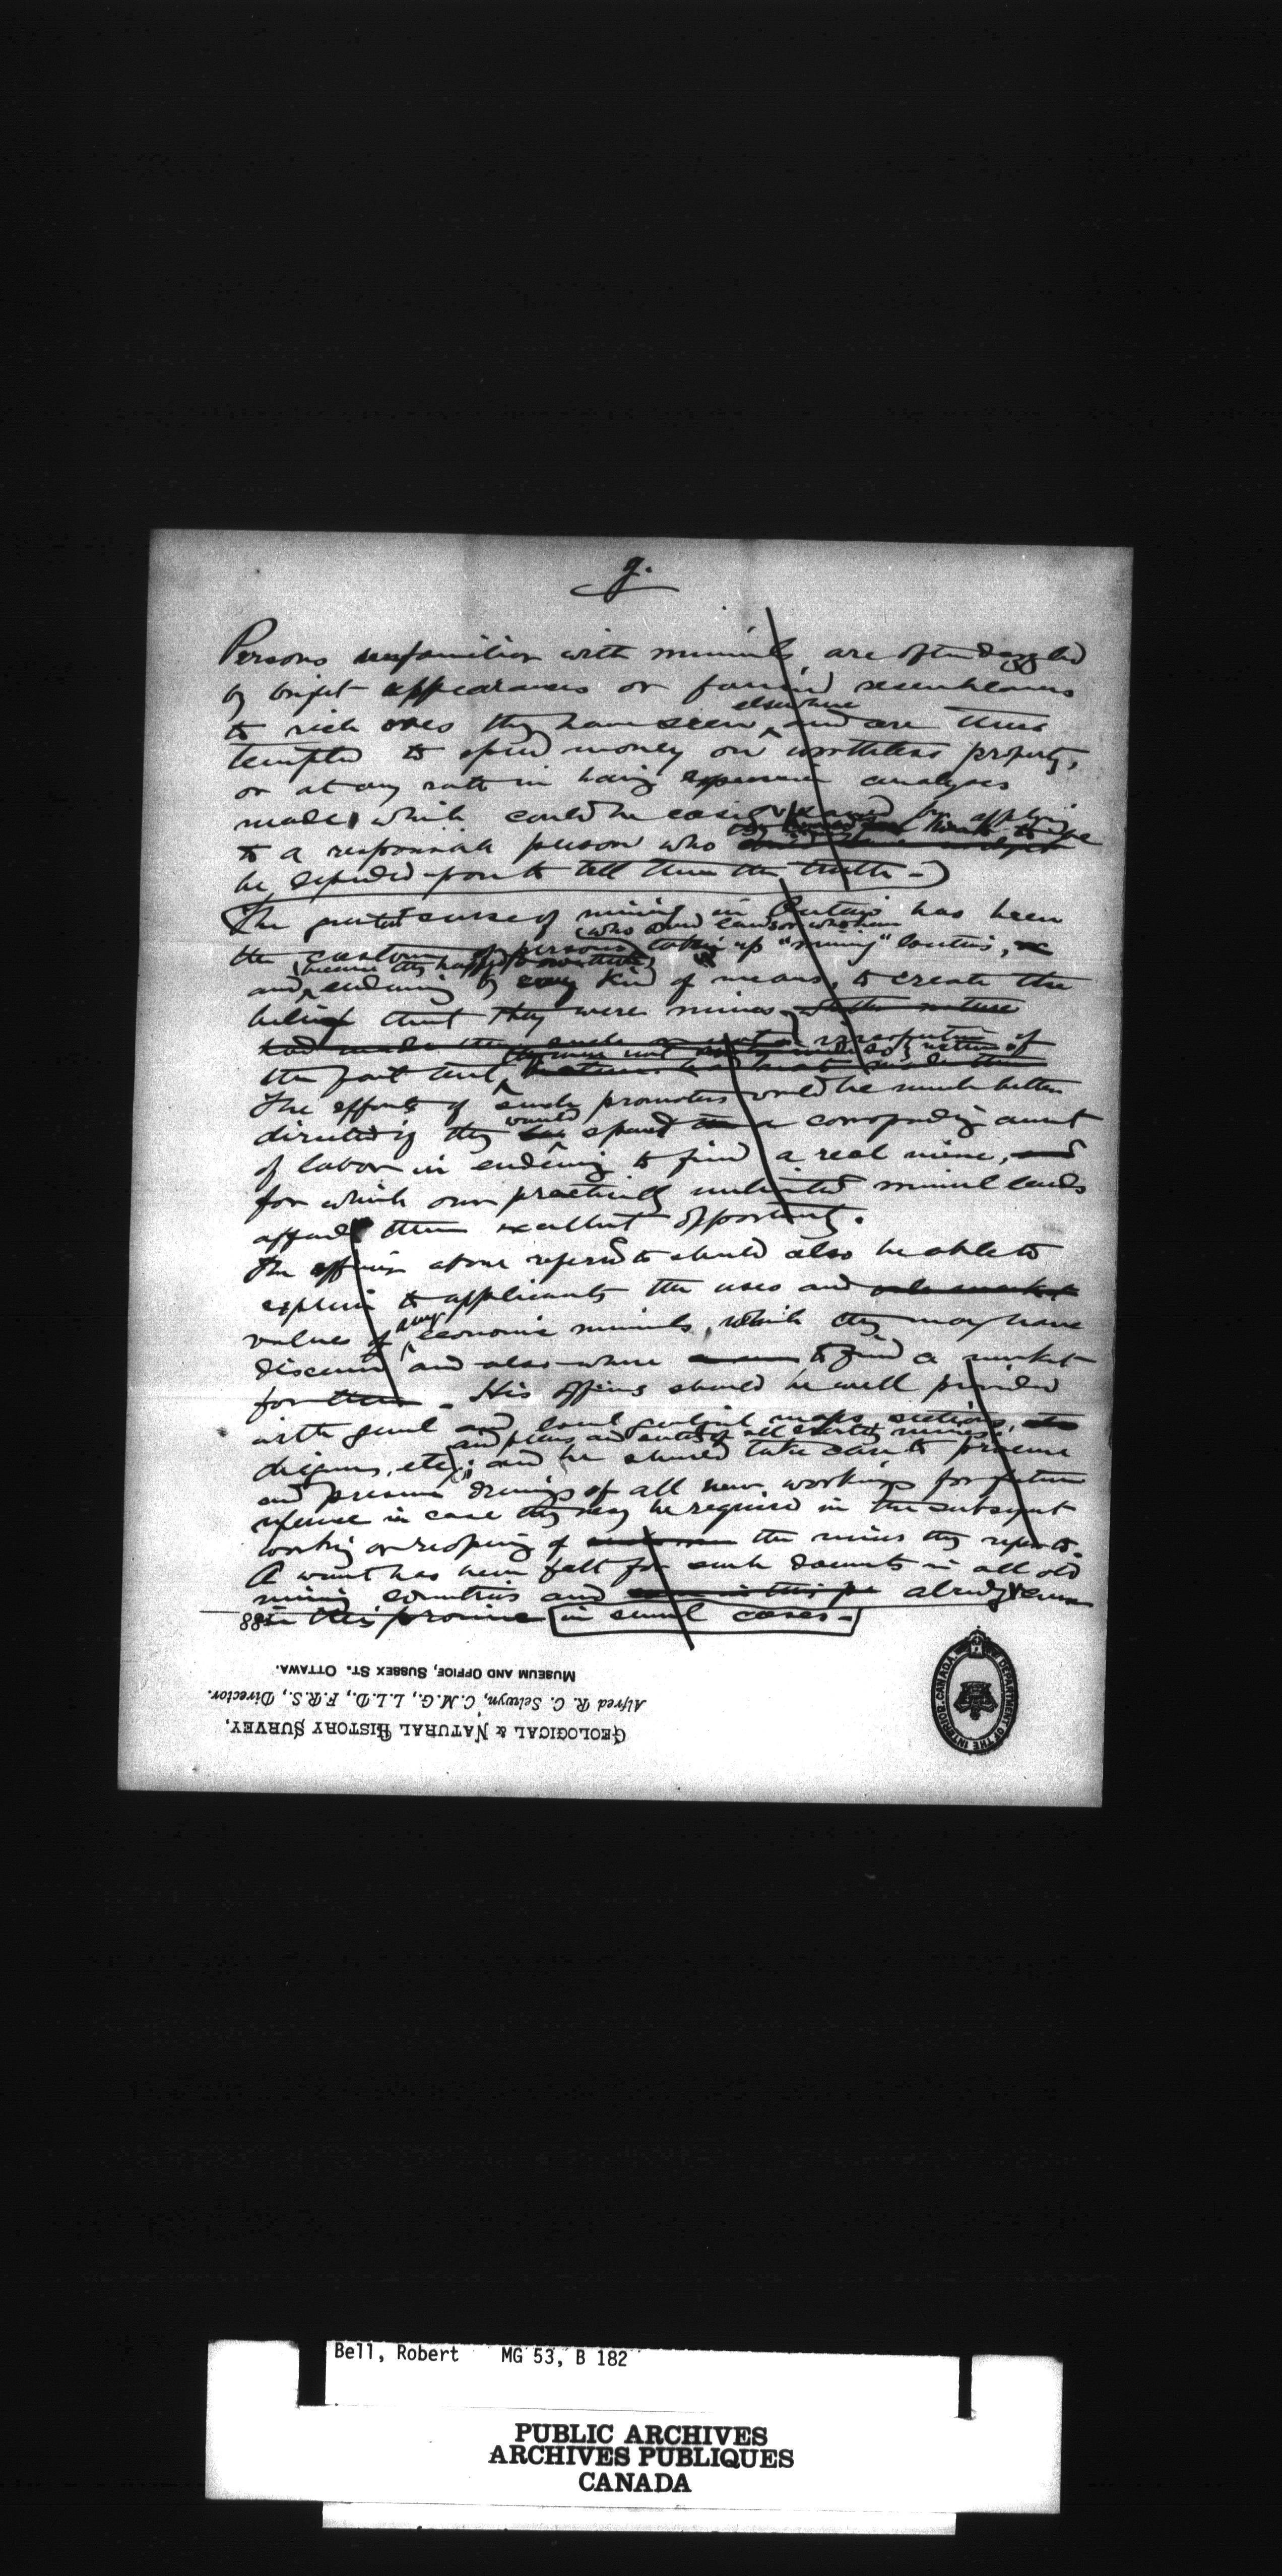 g.
Persons unfamiliar with minerals are often dazzled
by bright appearances or fancied resemblances
to rich ores they have seen elsewhere and are thus
tempted to spend money on worthless property,
or at any rate in having expensive analyses
made which could be easily saved by applying
to a responsible person who
be depended upon to tell them the truth -
The greatest curse of mining in Ontario has been
the custom of persons who own land or who have taken up "mining" locations,
and because they happened to own them endeavoring by every kind of means, to create the
belief that they were mines whether nature
had made them such or not irrespective of
the fact that they were not made so by nature
The efforts of such promoters would be much better
directed if they would spend a corresponding amount
of labor in endeavoring to find a real mine, and
for which our practically unlimited mineral lands
afford them excellent opportunity.
The officer above referred to should also be able to
explain to applicants the uses and market
values of any economic minerals, which they may have
discovered and also where to find a market
for them - His office should be well provided
with general and local maps, sections,
diagrams, etc, and plans and sections of all existing mines; and he should take care to procure
and preserve drawings of all new workings for future
reference in case they may be required in the subsequent
working or reopening of the mines they refer to.
A want has been felt for such documents in all old
mining countries and already even
in this province in several cases -
188
Museum and Office, Sussex St. Ottawa.
Alfred R. C. Selwyn, C.M.G., LL.D., F.R.S., Director.
Geological & Natural History Survey,
DEPARTMENT OF THE INTERIOR. CANADA.
Bell, Robert MG 53, B 182
PUBLIC ARCHIVES
ARCHIVES PUBLIQUES
CANADA